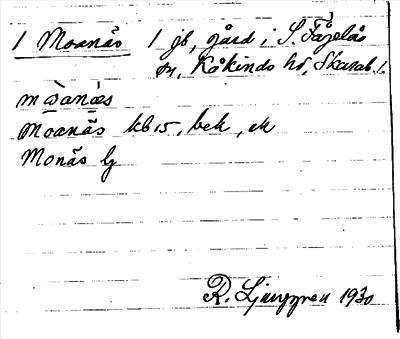 1 Moanäs 1 jb, gård i S. Fågelås
sn, Kåkinds hd, Skarab. l.
mὼanǽs
Moanäs kb 15, bek, ek
Monäs lj
R. Ljunggren 1930